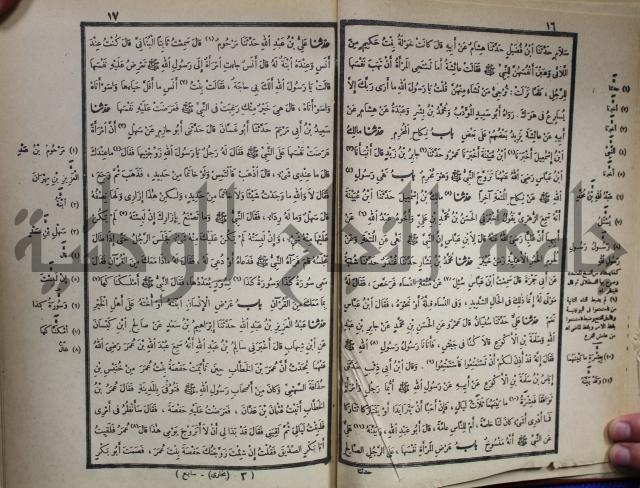 ١٦
سلام حدثنا ابن فضيل حدثنا هشام عن أبيه قال كانت خولة بنت حكيم من
اللائي وهبن أنفسهن للنبي ﷺ فقالت عائشة أما تستحي المرأة أن تهب نفسها
للرجل، فلما نزلت: ترجئ من تشاء منهن قلت يا رسول الله ما أرى ربك إلا
يسارع في هواك. رواه أبو سعيد المؤدب ومحمد بن بشر وعبدة عن هشام عن
أبيه عن عائشة يزيد بعضهم على بعض باب نكاح المحرم حدثنا مالك
ابن إسمعيل أخبرنا ابن عيينة أخبرنا عمرو حدثنا جابر بن زيد قال أنبأنا
ابن عباس رضي الله عنهما تزوج النبي ﷺ وهو محرم باب نهي رسول
الله ﷺ عن نكاح المتعة آخرا حدثنا مالك بن إسمعيل حدثنا ابن عيينة
أنه سمع الزهري يقول أخبرني الحسن بن محمد بن علي وأخوه عبد الله عن
أبيهما أن عليا رضي الله عنه قال لابن عباس إن النبي ﷺ نهى عن المتعة وعن
لحوم الحمر الأهلية زمن خيبر حدثنا محمد بن بشار حدثنا غندر حدثنا شعبة
عن أبي جمرة قال سمعت ابن عباس سئل عن متعة النساء فرخص، فقال له
مولى له إنما ذلك في الحال الشديد، وفي النساء قلة أو نحوه، فقال ابن عباس
نعم حدثنا علي حدثنا سفيان قال عمرو عن الحسن بن محمد عن جابر بن عبد
الله وسلمة بن الأكوع قالا كنا في جيش، فأتانا رسول رسول الله ﷺ
فقال إنه قد أذن لكم أن تستمتعوا فاستمتعوا وقال ابن أبي ذئب حدثني
إياس بن سلمة بن الأكوع عن أبيه عن رسول الله ﷺ أيما رجل وامرأة
توافقا فعشرة ما بينهما ثلاث ليال، فإن أحبا أن يتزايدا أو يتتاركا تتاركا
فما أدري أشيء كان لنا خاصة، أم للناس عامة، قال أبو عبد الله وبينه علي
عن النبي ﷺ أنه منسوخ باب عرض المرأة نفسها على الرجل الصالح
حدثنا
١٧
حدثنا علي بن عبد الله حدثنا مرحوم قال سمعت ثابتا البناني قال كنت عند
أنس وعنده ابنة له قال أنس جاءت امرأة إلى رسول الله ﷺ تعرض عليه نفسها
قالت يا رسول الله ألك بي حاجة، فقالت بنت أنس ما أقل حياءها واسوأتاه
واسوأتاه، قال هي خير منك رغبت في النبي ﷺ فعرضت عليه نفسها حدثنا
سعيد بن أبي مريم حدثنا أبو غسان قال حدثني أبو حازم عن سهل أن امرأة
عرضت نفسها على النبي ﷺ فقال له رجل يا رسول الله زوجنيها فقال ما عندك
قال ما عندي شيء، قال اذهب فالتمس ولو خاتما من حديد، فذهب ثم رجع،
فقال لا والله ما وجدت شيئا ولا خاتما من حديد، ولكن هذا إزاري ولها نصفه
قال سهل وما له رداء، فقال النبي ﷺ وما تصنع بإزارك إن لبسته لم يكن
عليها منه شيء، وإن لبسته لم يكن عليك منه شيء فجلس الرجل حتى إذا طال
مجلسه قام فرآه النبي ﷺ فدعاه أو دعي له، فقال له ماذا معك من القرآن فقال
معي سورة كذا وسورة كذا لسور يعددها، فقال النبي ﷺ أملكناكها
بما معك من القرآن باب عرض الإنسان ابنته أو أخته على أهل الخير
حدثنا عبد العزيز بن عبد الله حدثنا إبراهيم بن سعد عن صالح ابن كيسان
عن ابن شهاب قال أخبرني سالم بن عبد الله أنه سمع عبد الله بن عمر رضي الله
عنهما يحدث أن عمر بن الخطاب حين تأيمت حفصة بنت عمر من خنيس بن
حذافة السهمي وكان من أصحاب رسول الله ﷺ فتوفي بالمدينة، فقال عمر بن
الخطاب أتيت عثمان بن عفان، فعرضت عليه حفصة، فقال سأنظر في أمري
فلبثت ليالي ثم لقيني فقال قد بدا لي أن لا أتزوج يومي هذا قال عمر، فلقيت
أبا بكر الصديق فقلت إن شئت زوجتك حفصة بنت عمر، فصمت أبو بكر
(٣ - (بخاري) - سابع)
(١) مرحوم بن عبد
العزيز بن مهران
(٢) ابنة
(٣) سهل بن سعد
(٤) قال
(٥) إن لبست
(٦) وسورة كذا
(٧) أمكناكها
(٨) فقال
جامعة النجاح الوطنية